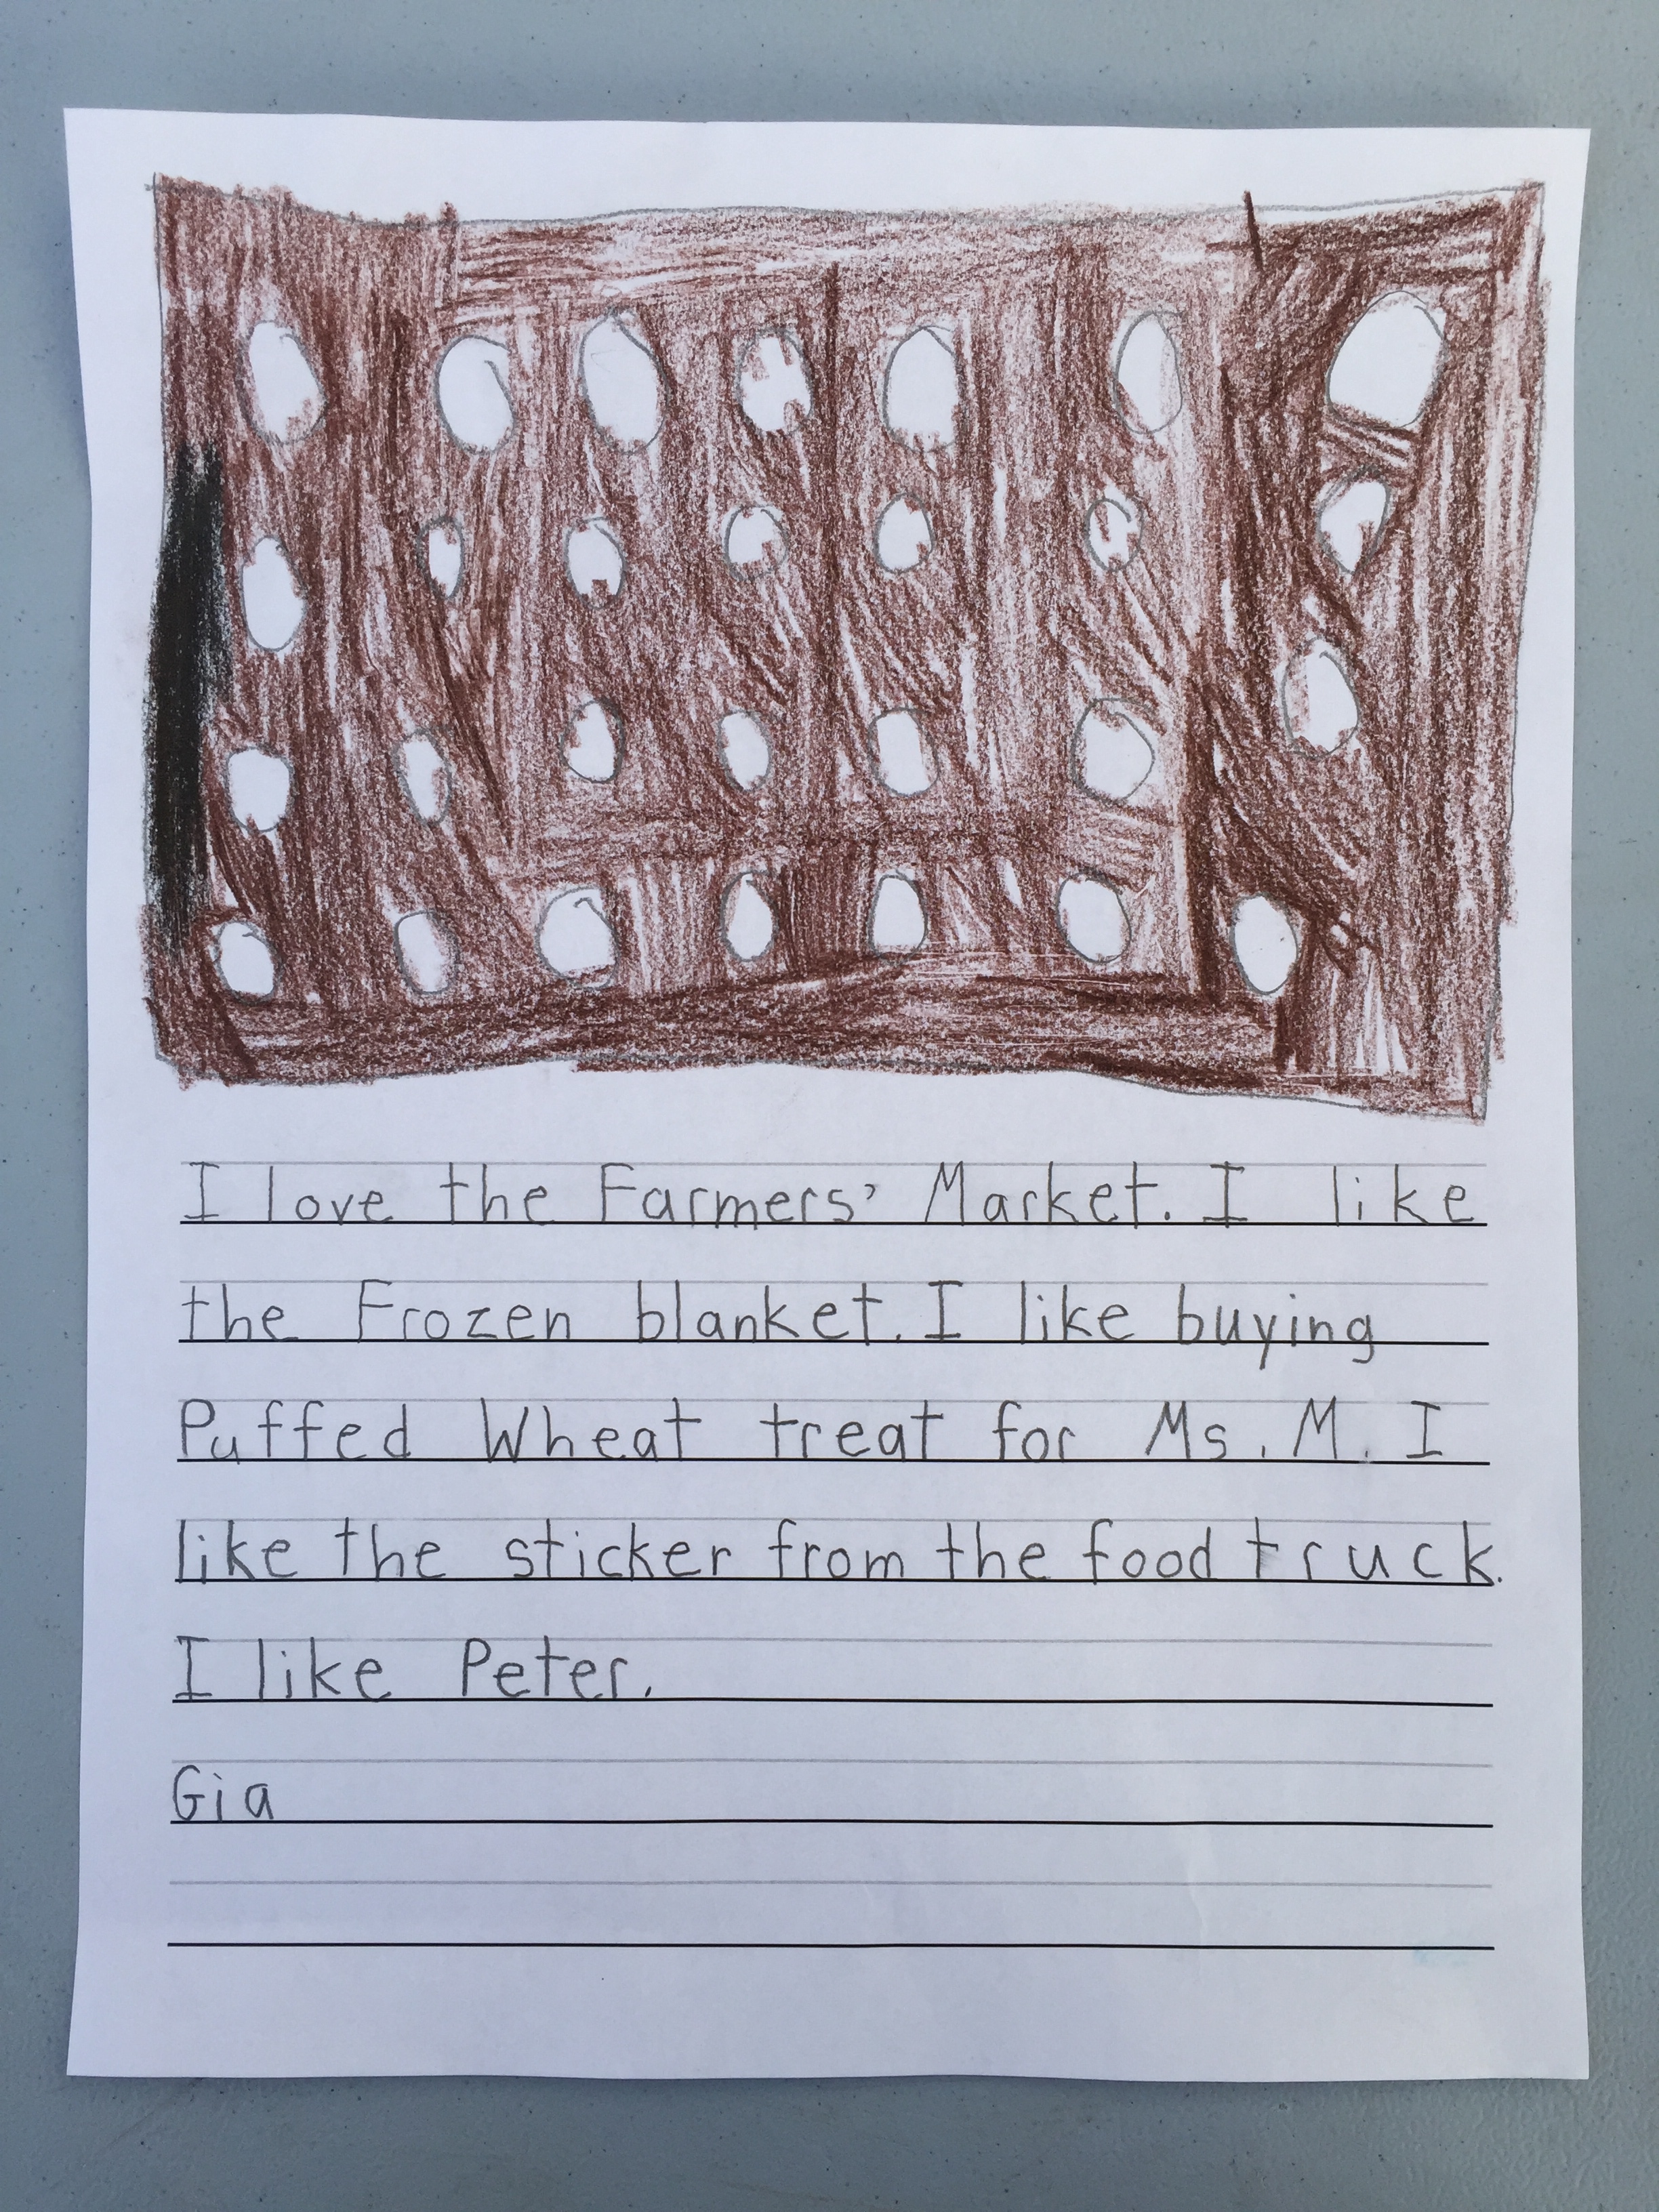 I love the Farmers' Market. I like
the Frozen blanket. I like buying
Puffed Wheat treat for Ms. M. I
like the sticker from the food truck.
I like Peter.
Gia